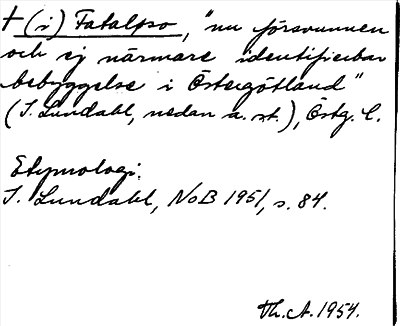 † (i) Fatalpso, "nu försvunnen
och ej närmare identifierbar
bebyggelse i Östergötland"
(I. Lundahl, nedan a. st.), Östg. l.
Etymologi:
I. Lundahl, NoB 1951, s. 84.
Th. A. 1954.